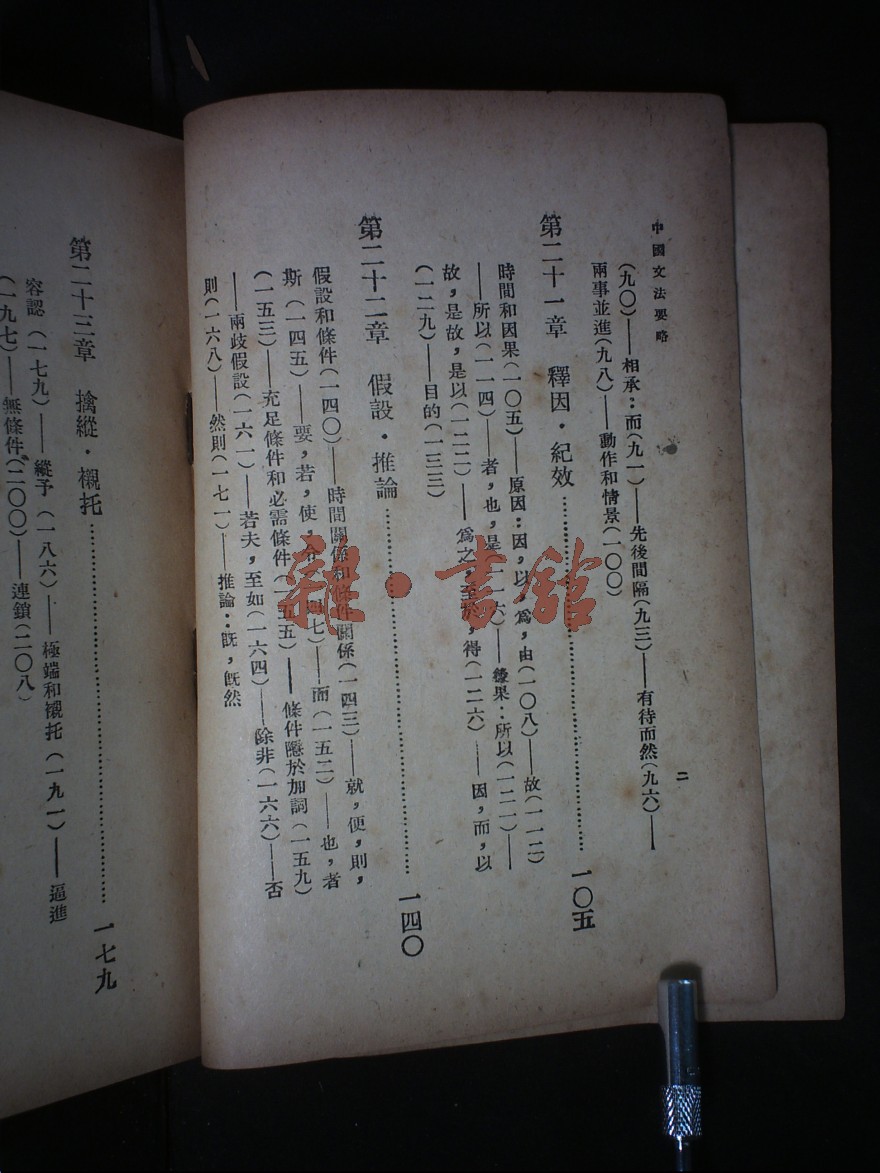 中國文法要略
二
(九〇)——相承：而(九一)——先後間隔(九三)——有待而然(九六)——
兩事並進(九八)——動作和情景(一〇〇)
第二十一章 釋因·紀效 一〇五
時間和因果(一〇五)——原因：因，以，爲，由(一〇八)——故(一一二)
——所以(一一四)——者，也，是(一一六)——後果：所以(一二一)——
故，是故，是以(一二二)——爲之，至於，得(一二六)——因，而，以
(一二九)——目的(一三三)
第二十二章 假設·推論 一四〇
假設和條件(一四〇)——時間關係和條件關係(一四三)——就，便，則，
斯(一四五)——要，若，使，令 四七)——而(一五二)——也，者
(一五三)——充足條件和必需條件(一五五)——條件隱於加詞(一五九)
——兩歧假設(一六一)——若夫，至如(一六四)——除非(一六六)——否
則(一六八)——然則(一七一)——推論：旣，旣然
第二十三章 擒縱·襯托 一七九
容認(一七九)——縱予(一八六)——極端和襯托(一九一)——逼進
(一九七)——無條件(二〇〇)——連鎖(二〇八)
雜·書館